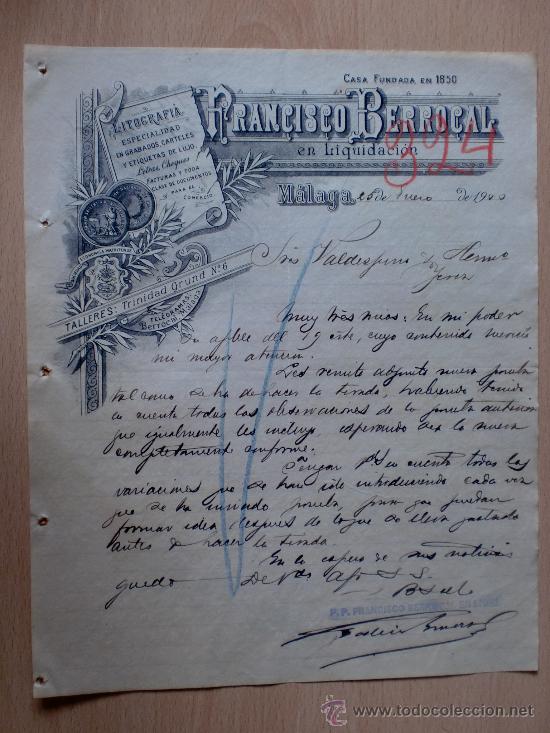 CASA FUNDADA EN 1850
FRANCISCO BERROCAL
en Liquidación
324
LITOGRAFIA
ESPECIALIDAD
EN GRABADOS, CARTELES
Y ETIQUETAS DE LUJO
Letras, Cheques
FACTURAS Y TODA
CLASE DE DOCUMENTOS
PARA EL
COMERCIO
TALLERES: Trinidad Grund Nº 6
TELEGRAMAS:
Berrocal Málaga
Málaga 25 de Enero de 1920
Sres Valdespino y Hermo
Jerez
Muy Sres mios: En mi poder
su aple del 19 este, cuyo contenido mereció
mi mayor atencion.
Les remito adjunto nueva prueba
tal como se ha de hacer la tirada, habiendo tenido
en cuenta todas las observaciones de la prueba anterior
que igualmente les incluyo, esperando sea la nueva
completamente conforme.
Tengan Vds en cuenta todas las
variaciones que se han sólo introduciendo cada vez
que se ha enviado prueba, para que puedan
formar idea despues de lo que se lleva gastado
antes de hacer la tirada.
En la espera de sus noticias
quedo De Vds Afo S. S.
P.P. FRANCISCO BERROCAL
todocoleccion.net